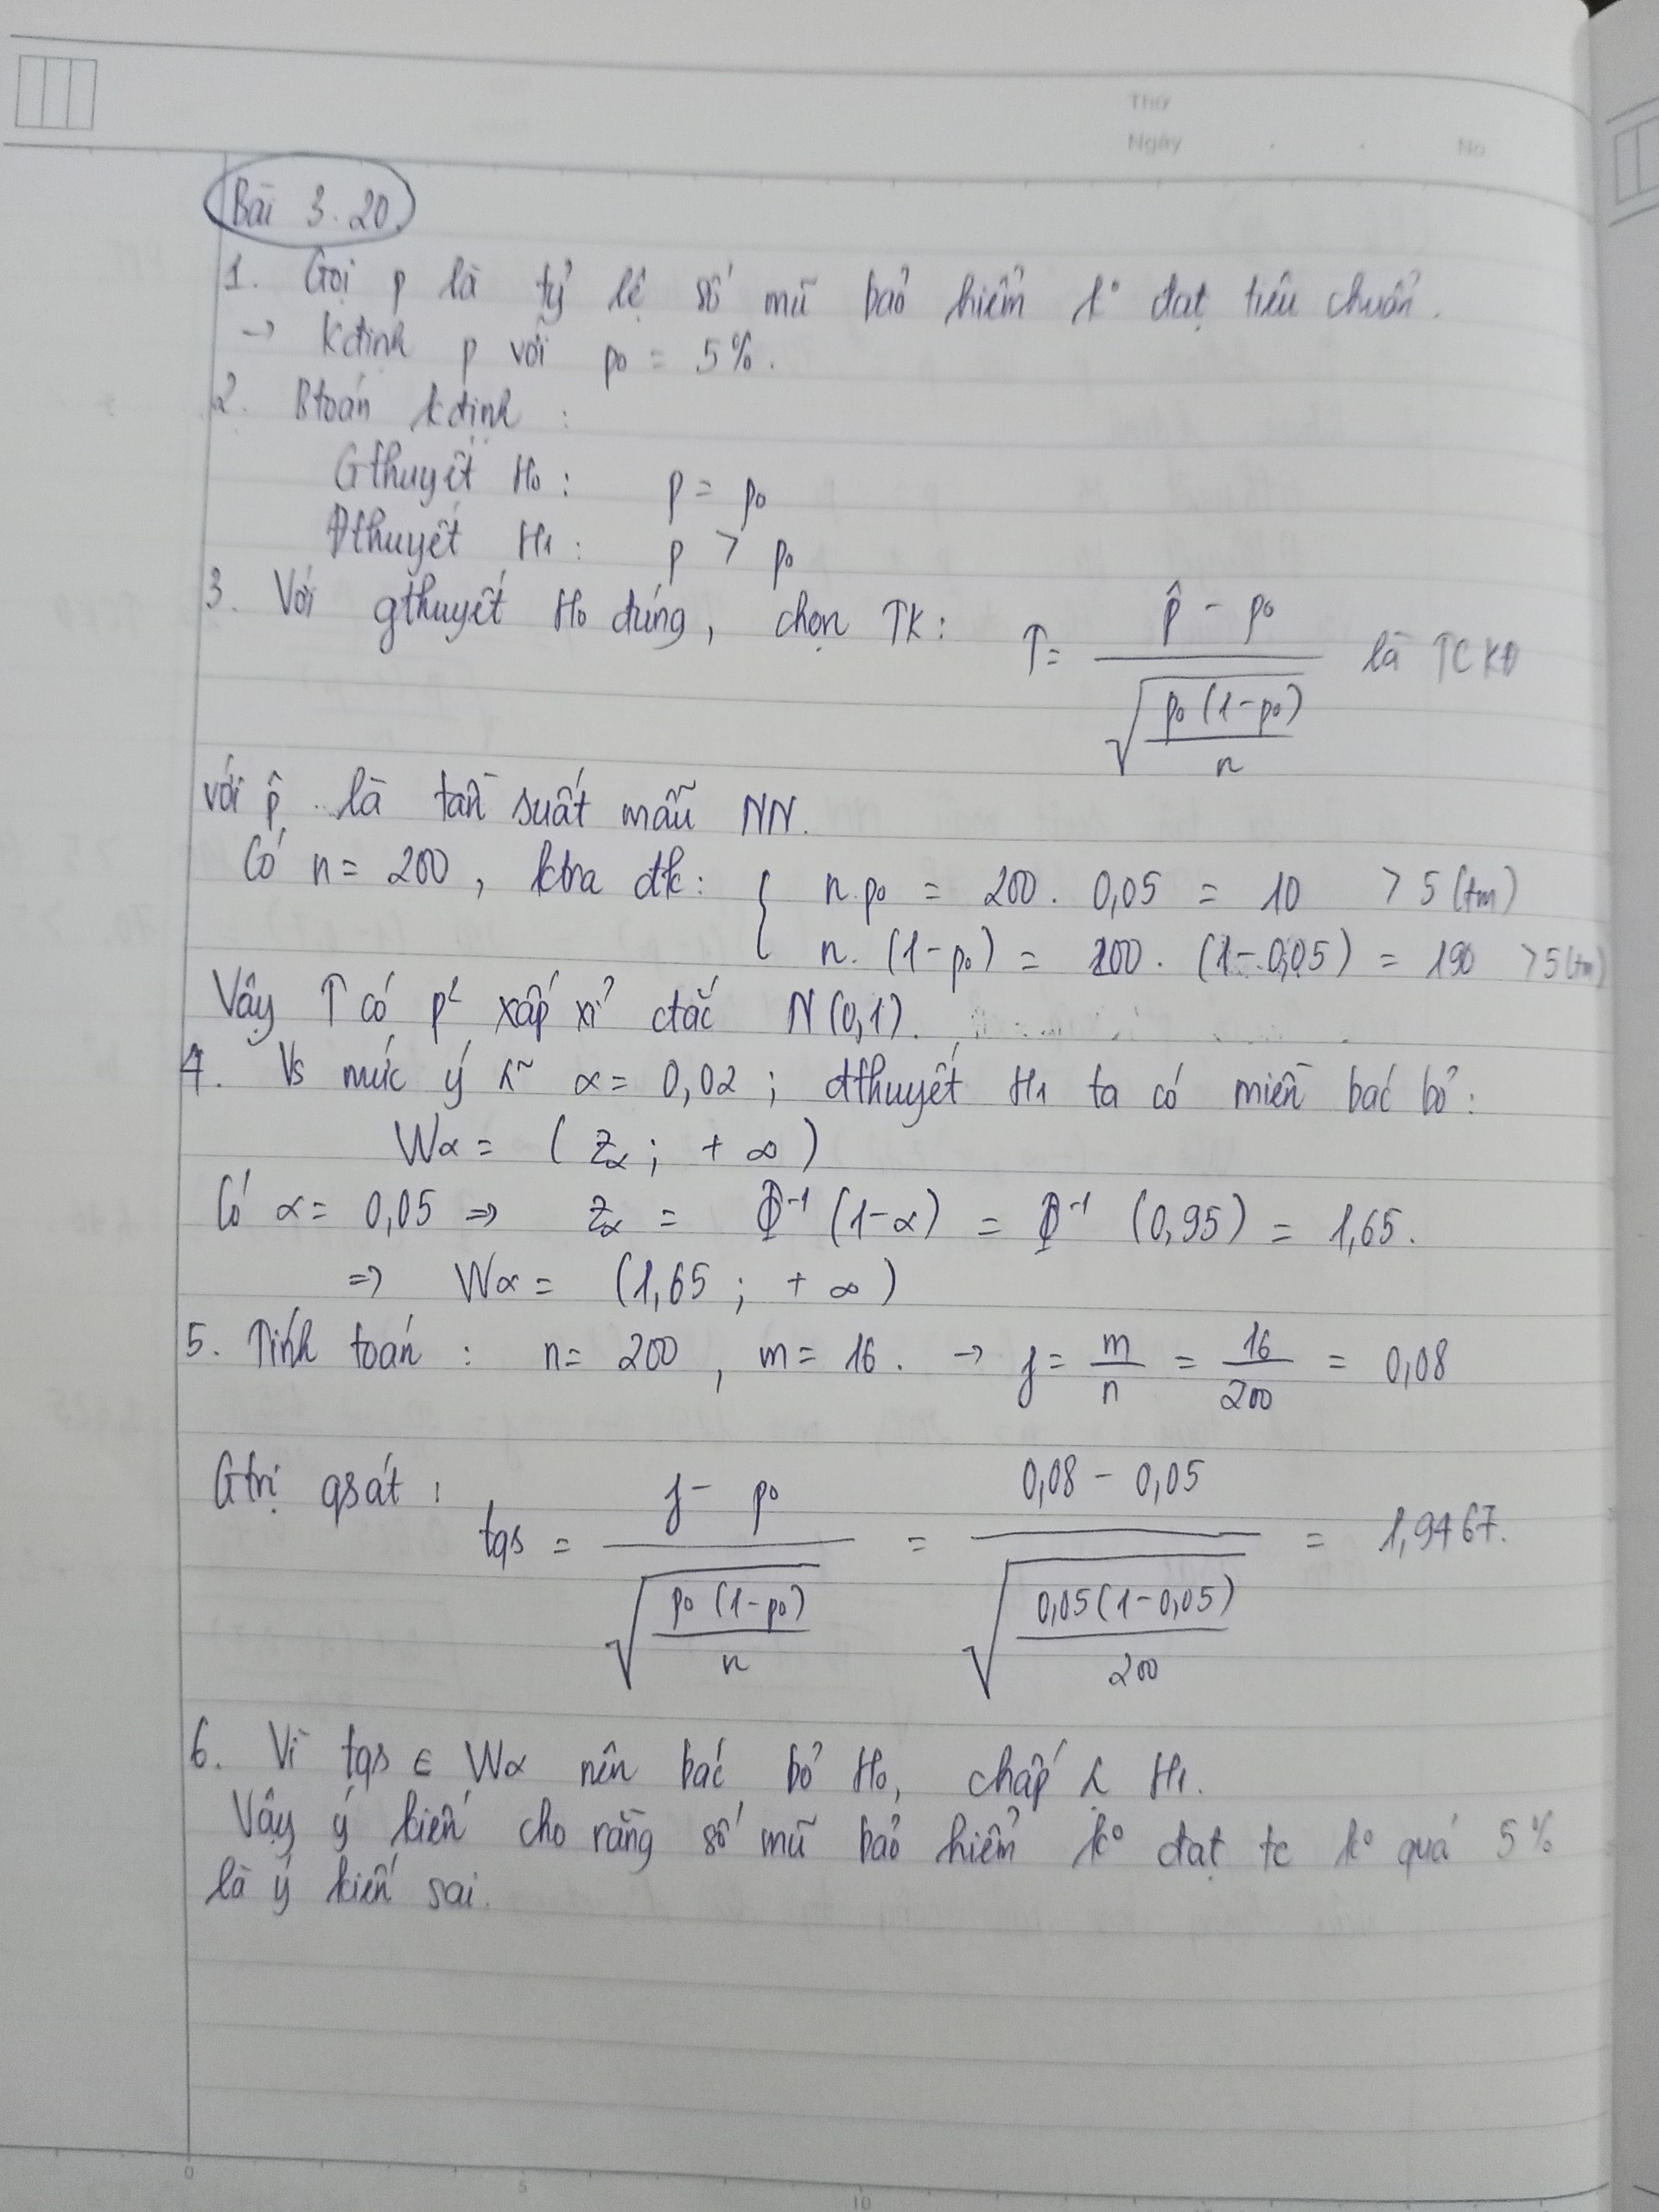 Thứ
Ngày . . No.
Bài 3.20.
1. Gọi p là tỷ lệ số mũ bảo hiểm k° đạt tiêu chuẩn.
→ Kđịnh p với p₀ = 5%.
2. Btoán kđịnh :
Gthuyết H₀ : p = p₀
Đthuyết H₁ : p > p₀
3. Với gthuyết H₀ đúng, chọn TK: T = (p̂ - p₀) / √(p₀(1-p₀)/n) là TCKĐ
với p̂ là tần suất mẫu NN.
Có n = 200, ktra đk: { n.p₀ = 200. 0,05 = 10 > 5 (tm)
n. (1-p₀) = 200. (1-0,05) = 190 > 5 (tm)
Vậy T có p² xấp xỉ ctắc N(0,1).
4. Vs mức ý n~ α = 0,02 ; đthuyết H₁ ta có miền bác bỏ :
Wα = ( zα ; + ∞ )
Có α = 0,05 ⇒ zα = Φ⁻¹ (1-α) = Φ⁻¹ (0,95) = 1,65.
⇒ Wα = (1,65 ; + ∞ )
5. Tính toán : n = 200 , m = 16 . → f = m/n = 16/200 = 0,08
Gtrị qsát : tqs = (f - p₀) / √(p₀(1-p₀)/n) = (0,08 - 0,05) / √(0,05(1-0,05)/200) = 1,9467.
6. Vì tqs ∈ Wα nên bác bỏ H₀, chấp n H₁.
Vậy ý kiến cho rằng số mũ bảo hiểm k° đạt tc k° quá 5%
là ý kiến sai.
0 5 10